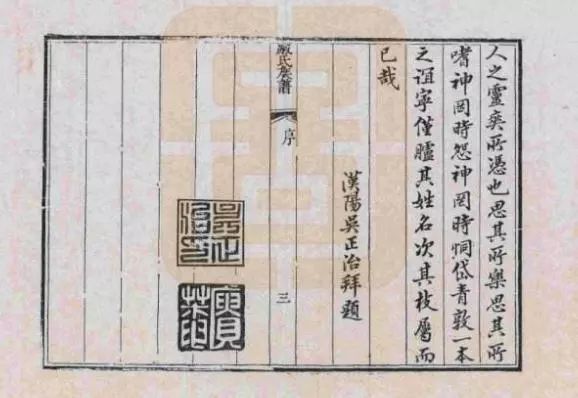 人之靈奚所憑也思其所樂思其所
嗜神罔時怨神罔時恫岱青敦一本
之誼寧僅臚其姓名次其枝屬而
已哉
漢陽吳正治拜題
吳正治印
賡菴
氏族譜
序
三